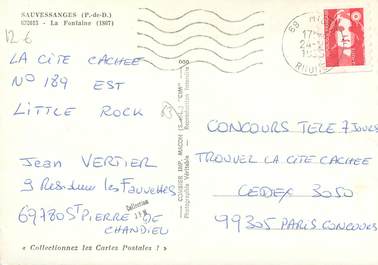 SAUVESSANGES (P.-de-D.)
La Fontaine (1867)
12 6
LA CITE CACHEE
N° 189 EST
LITTLE ROCK
Jean VERTIER
9 Résidence les Fauvettes
69780 ST PIERRE DE
CHANDIEU
« Collectionnez les Cartes Postales ! »
Collection
COMBIER IMP. MACON (S.-et-L.) "CIM"
Photographie Véritable - Reproduction Interdite
69
17
24
RHONE
CONCOURS TELE 7 JOURS
TROUVER LA CITE CACHEE
CEDEX 3050
99305 PARIS CONCOURS